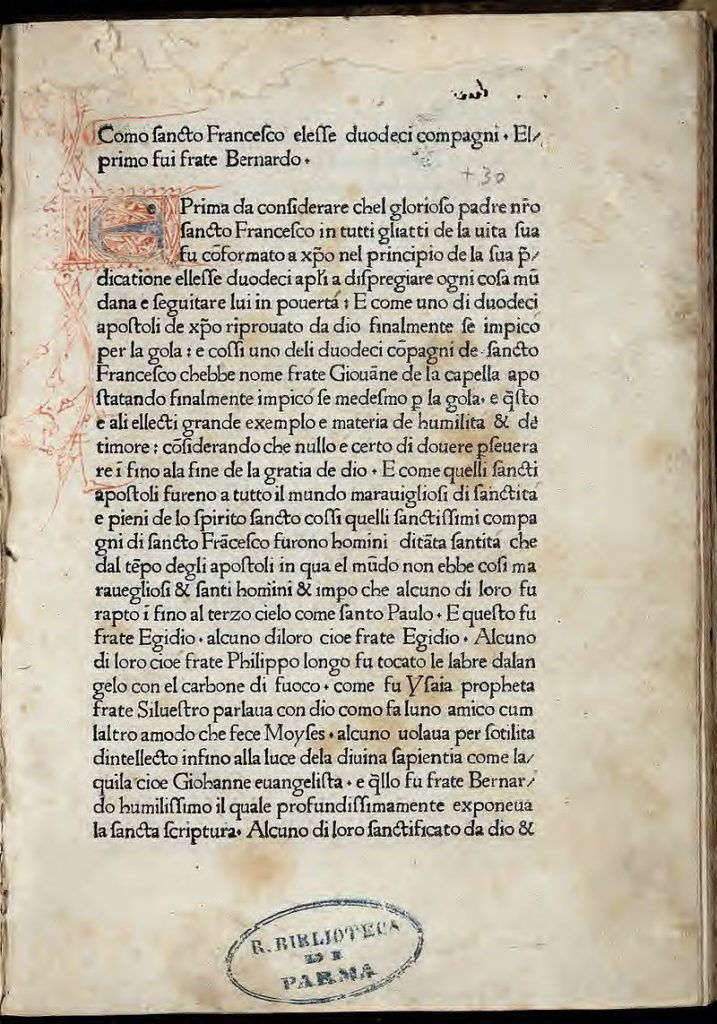 + 30
Como ſancto Franceſco eleſſe duodeci compagni · El/
primo fui frate Bernardo ·
E Prima da conſiderare chel glorioſo padre nr̄o
ſancto Franceſco in tutti gliatti de la uita ſua
fu cōformato a xp̄o nel principio de la ſua p̄/
dicatione elleſſe duodeci apl̄i a diſpregiare ogni coſa mū
dana e ſeguitare lui in pouerta : E come uno di duodeci
apoſtoli de xp̄o riprouato da dio finalmente ſe impico
per la gola : e coſſi uno deli duodeci cōpagni de ſancto
Franceſco chebbe nome frate Giouāne de la capella apo
ſtatando finalmente impico ſe medeſmo ꝑ la gola · e q̄ſto
e ali ellecti grande exemplo e materia de humilita & de
timore : cōſiderando che nullo e certo di douere ꝑſeuera
re ī fino ala fine de la gratia de dio · E come quelli ſancti
apoſtoli fureno a tutto il mundo marauiglioſi di ſanctita
e pieni de lo ſpirito ſancto coſſi quelli ſanctiſſimi compa
gni di ſancto Frāceſco furono homini ditāta ſantita che
dal tēpo degli apoſtoli in qua el mūdo non ebbe coſi ma
rauegliosi & ſanti homini & impo che alcuno di loro fu
rapto ī fino al terzo cielo come ſanto Paulo · E queſto fu
frate Egidio · alcuno diloro cioe frate Egidio · Alcuno
di loro cioe frate Philippo longo fu tocato le labre dalan
gelo con el carbone di fuoco · come fu Yſaia propheta
frate Silueſtro parlaua con dio como fa luno amico cum
laltro amodo che fece Moyſes · alcuno uolaua per ſotilita
dintellecto infino alla luce dela diuina ſapientia come la/
quila cioe Giohanne euangeliſta · e q̄llo fu frate Bernar/
do humiliſſimo il quale profundiſſimamente exponeua
la ſancta ſcriptura · Alcuno di loro ſanctificato da dio &
R. BIBLIOTECA
DI
PARMA